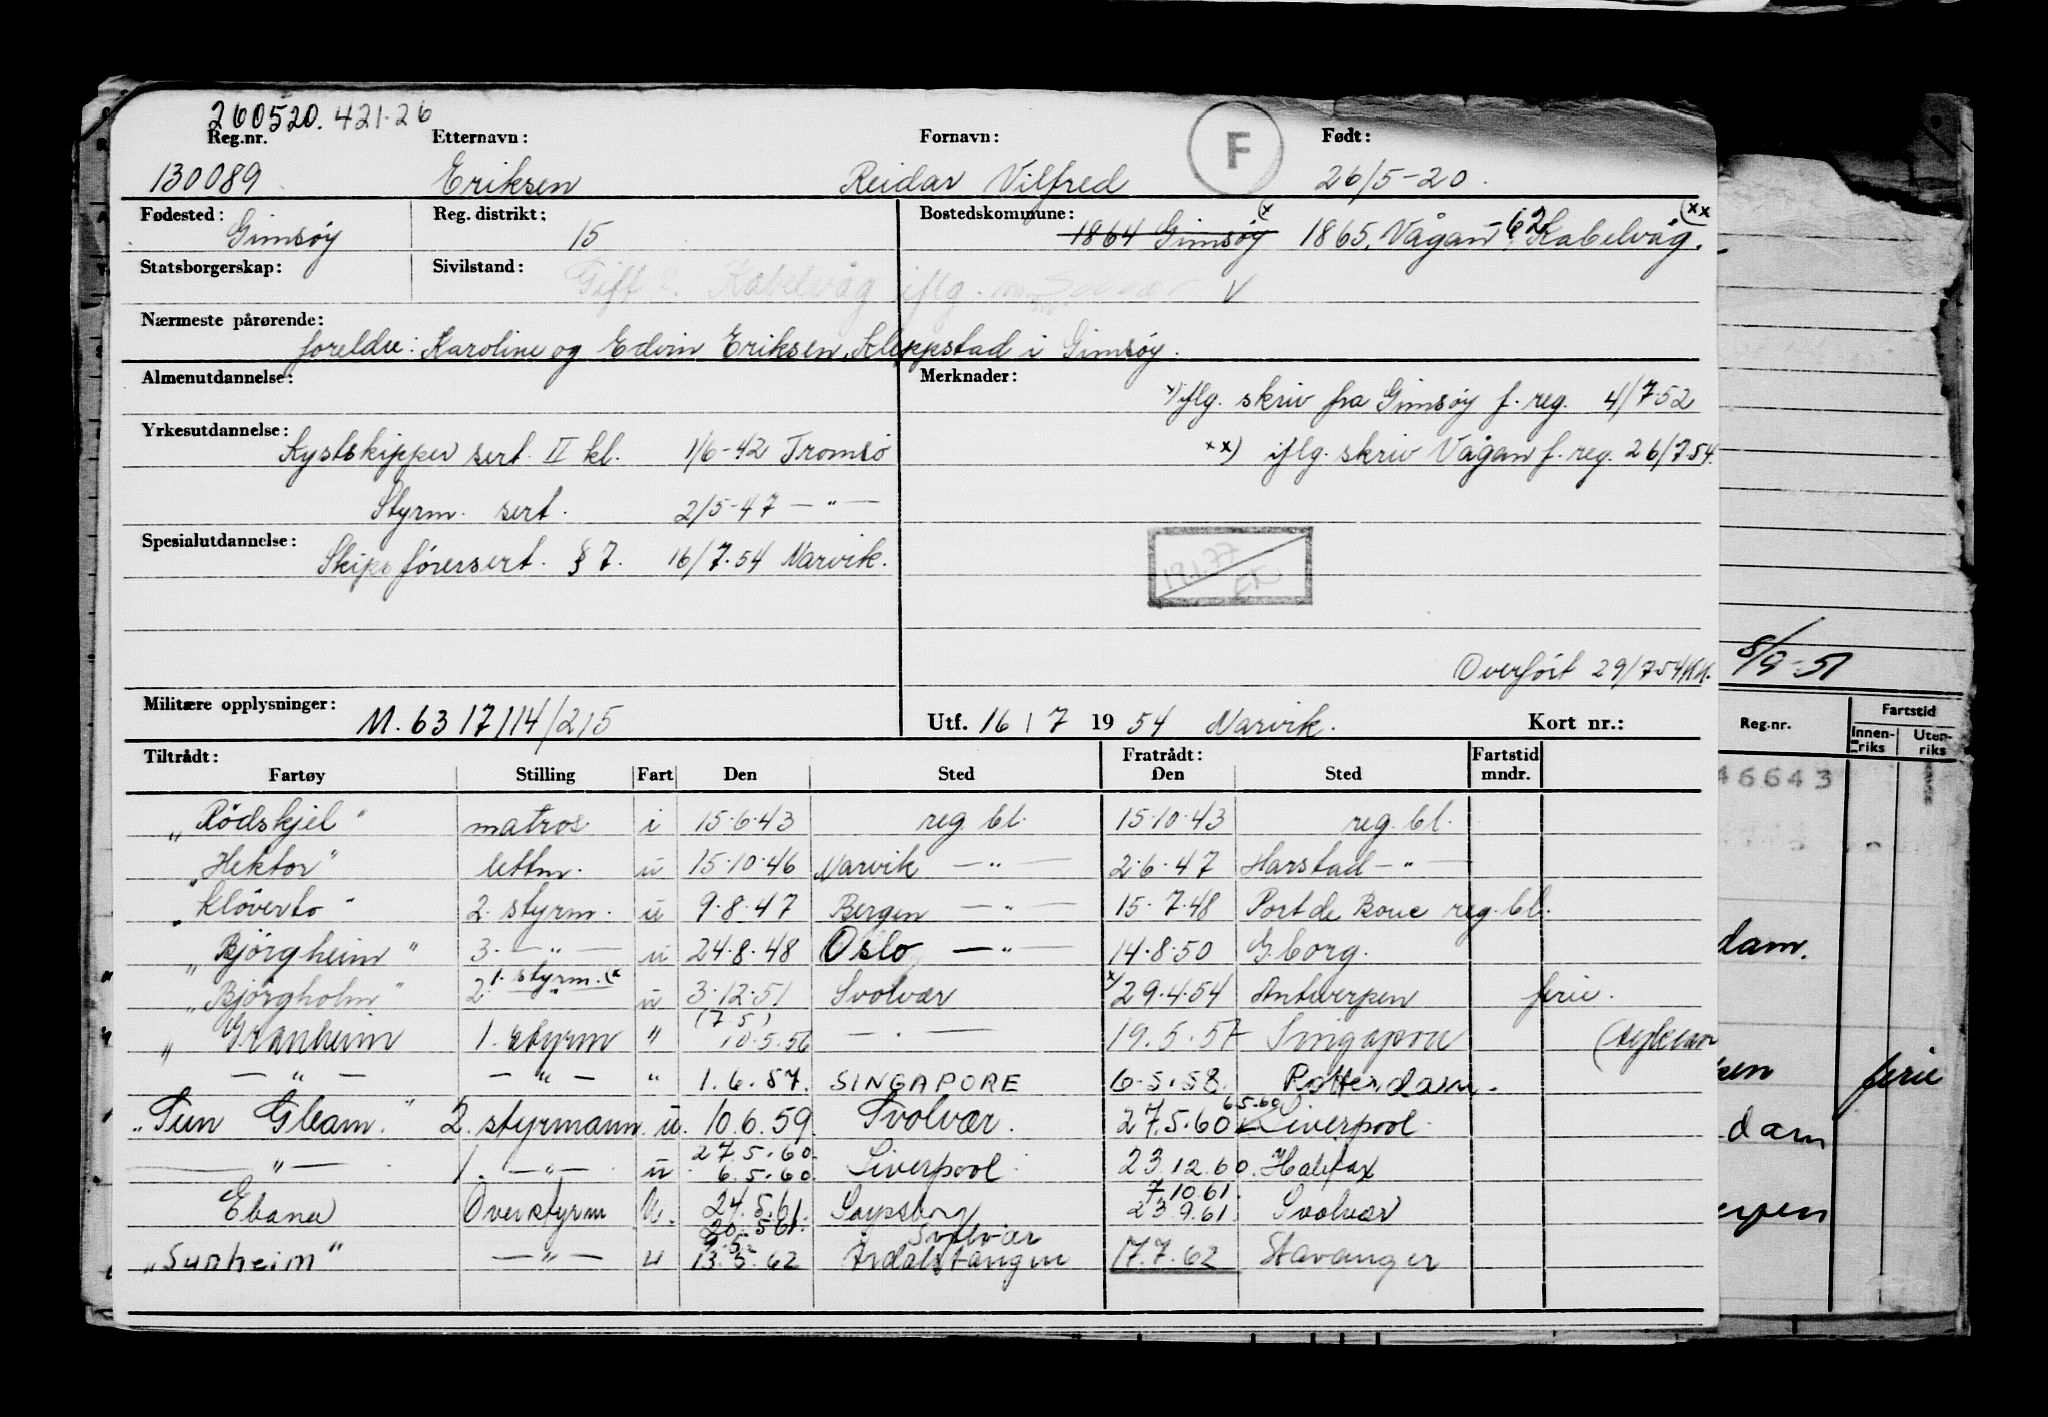 260520.421.26
Reg.nr. Etternavn: Fornavn: F Født:
130089 Eriksen Reidar Vilfred 26/5-20.
Fødested: Reg. distrikt: Bostedskommune:
Gimsøy 15 1864 Gimsøy x) 1865, Vågan 62 Kabelvåg. xx)
Statsborgerskap: Sivilstand:
Gift Kabelvåg iflg. V
Nærmeste pårørende:
foreldre: Karoline og Edvin Eriksen, Kleppstad i Gimsøy.
Almenutdannelse: Merknader:
x) iflg. skriv fra Gimsøy f. reg. 4/7.52
Yrkesutdannelse:
Kystskipper sert. II kl. 1/6-42 Tromsø
xx) iflg. skriv Vågan f. reg. 26/7.54.
Styrm. sert. 2/5-47 — " —
Spesialutdannelse:
Skipsførersert. § 7. 16/7.54 Narvik.
Overført 29/7-54
8/9-51
Militære opplysninger: M. 6317/14/215
Utf. 16 / 7 19 54 Narvik. Kort nr.:
Reg.nr. Fartstid
Innen-riks Uten-riks
46643
Tiltrådt: Fratrådt: Fartstid
Fartøy Stilling Fart Den Sted Den Sted mndr.
"Rødskjel" matros i 15.6.43 reg. bl. 15.10.43 reg. bl.
"Hektor" lettm. u 15.10.46 Narvik — " — 2.6.47 Harstad — " —
"Kløverto" 2. styrm. u 9.8.47 Bergen — " — 15.7.48 Port de Bouc reg. bl.
"Bjørgheim" 3. — " — u 24.8.48 Oslo — " — 14.8.50 G.borg.
dam.
"Bjørgholm" 2. 1. styrm. (x u 3.12.51 Svolvær x) 29.4.54 Antwerpen ferie.
"Granheim 1. styrm " (7.5) 10.5.56 — " — 19.5.57 Singapore
— " — — " — " 1.6.57. SINGAPORE 6.5.58. Rotterdam.
ferie
"Sun Gleam." 2. styrmann u. 10.6.59. Svolvær. 27.5.60 6.5.60 Liverpool.
dam
— " — 1. — " — u 27.5.60. 6.5.60. Liverpool. 23.12.60. Halifax
Ebana Overstyrm U. 24.5.61. 20.5.61. Sarpsborg Svolvær 7.10.61. 23.9.61. Svolvær
"Sunheim" — " — u 9.5. 13.5.62 Årdalstangen 17.7.62 Stavanger